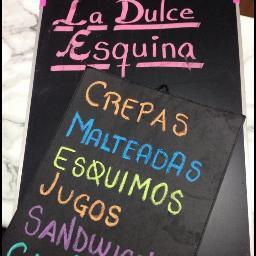 La Dulce
Esquina
CREPAS
MALTEADAS
ESQUIMOS
JUGOS